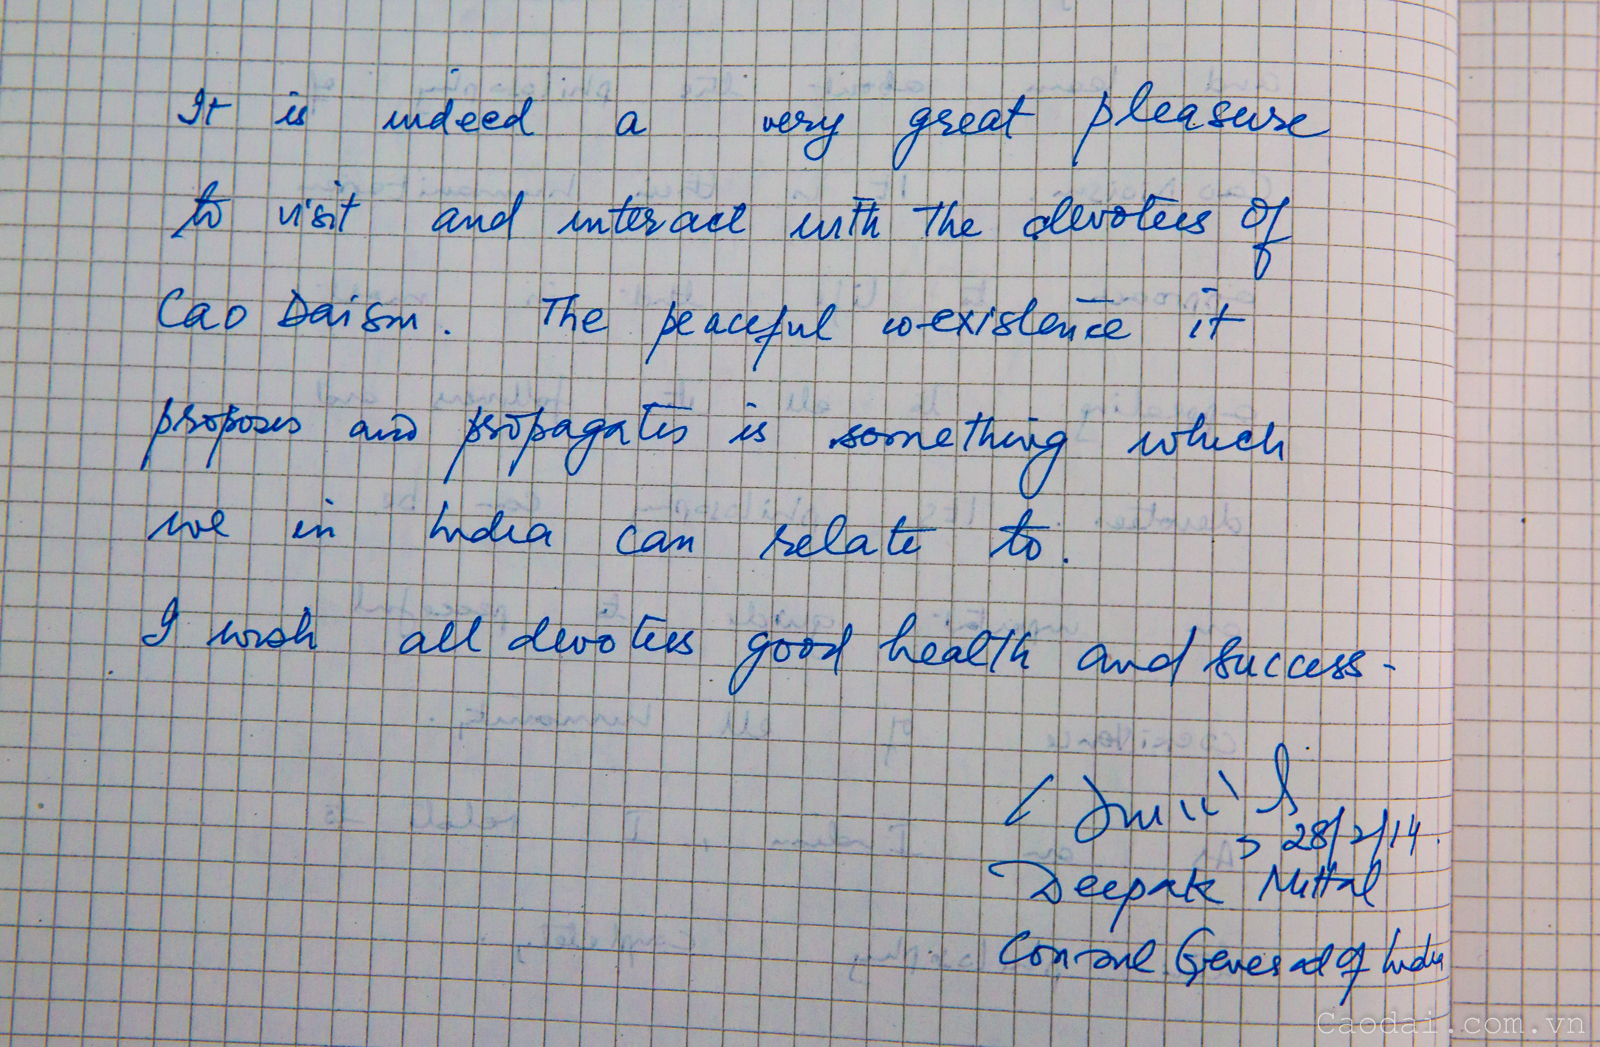 It is indeed a very great pleasure
to visit and interact with the devotees of
Cao Daism. The peaceful co-existence it
proposes and propagates is something which
we in India can relate to.
I wish all devotees good health and success.
28/2/14.
Deepak Mittal
Consul General of India
Caodai.com.vn